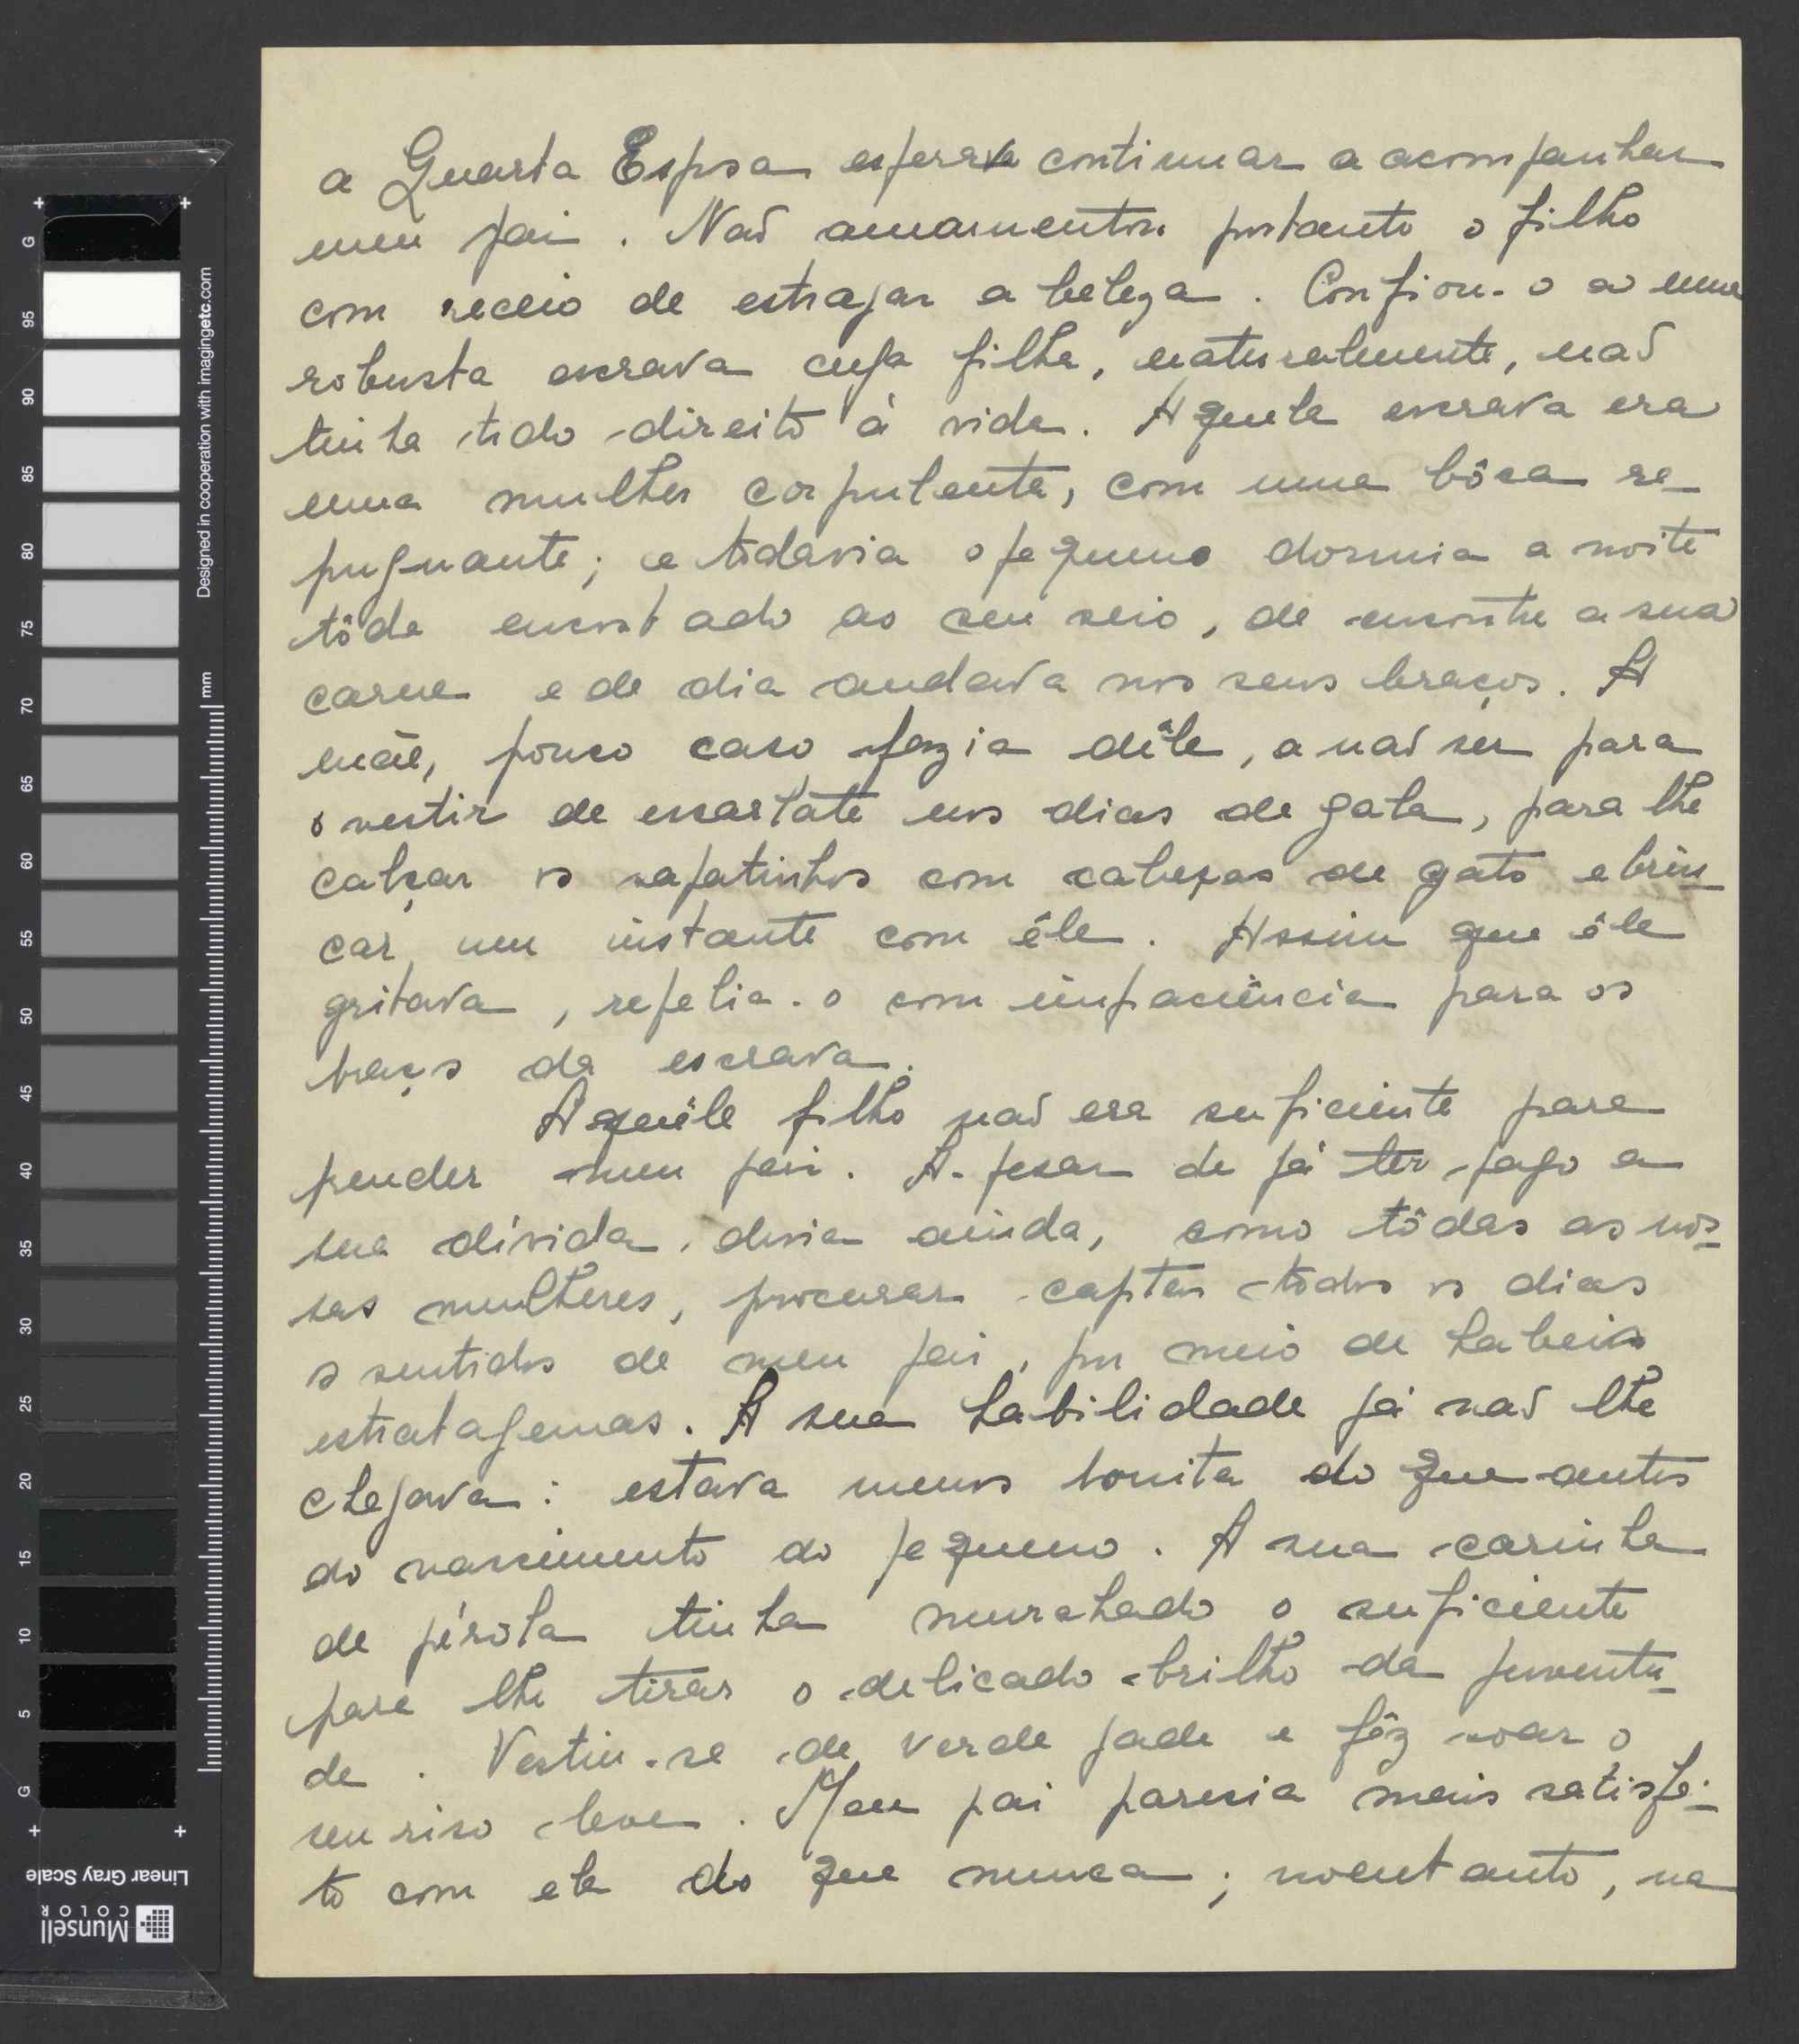 a Quarta Esposa esperava continuar a acompanhar
meu pai. Não amamentou portanto o filho
com receio de estragar a beleza. Confiou-o a uma
robusta escrava cuja filha, naturalmente, não
tinha tido direito à vida. Aquela escrava era
uma mulher corpulenta, com uma bôca re-
pugnante; e todavia o pequeno dormia a noite
tôda encostado ao seu seio, de encontro a sua
carne e de dia andava nos seus braços. A
mãe, pouco caso fazia dêle, a não ser para
o vestir de escarlate nos dias de gala, para lhe
calçar os sapatinhos com cabeças de gato e brin-
car um instante com êle. Assim que êle
gritava, repelia-o com impaciência para os
braços da escrava.
Aquêle filho não era suficiente para
prender meu pai. A-pesar de já ter pago a
sua dívida, devia ainda, como tôdas as nos-
sas mulheres, procurar captar todos os dias
os sentidos de meu pai, por meio de habeis
estratagemas. A sua habilidade já não lhe
chegava: estava menos bonita do que antes
do nascimento do pequeno. A sua carinha
de pérola tinha murchado o suficiente
para lhe tirar o delicado brilho da juventu-
de. Vestiu-se de verde jade e fêz soar o
seu riso leve. Meu pai parecia mais satisfei-
to com ela do que nunca; noentanto, na
G
95
90
85
80
75
70
65
60
55
50
45
40
35
30
25
20
15
10
5
G
mm
Designed in cooperation with imagingetc.com
Linear Gray Scale
Munsell
COLOR